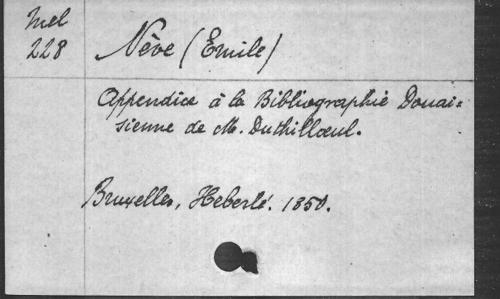 Mel
228
Nève (Emile)
Appendice à la Bibliographie Douai-
sienne de M. Duthillœul.
Bruxelles, Heberlé. 1850.